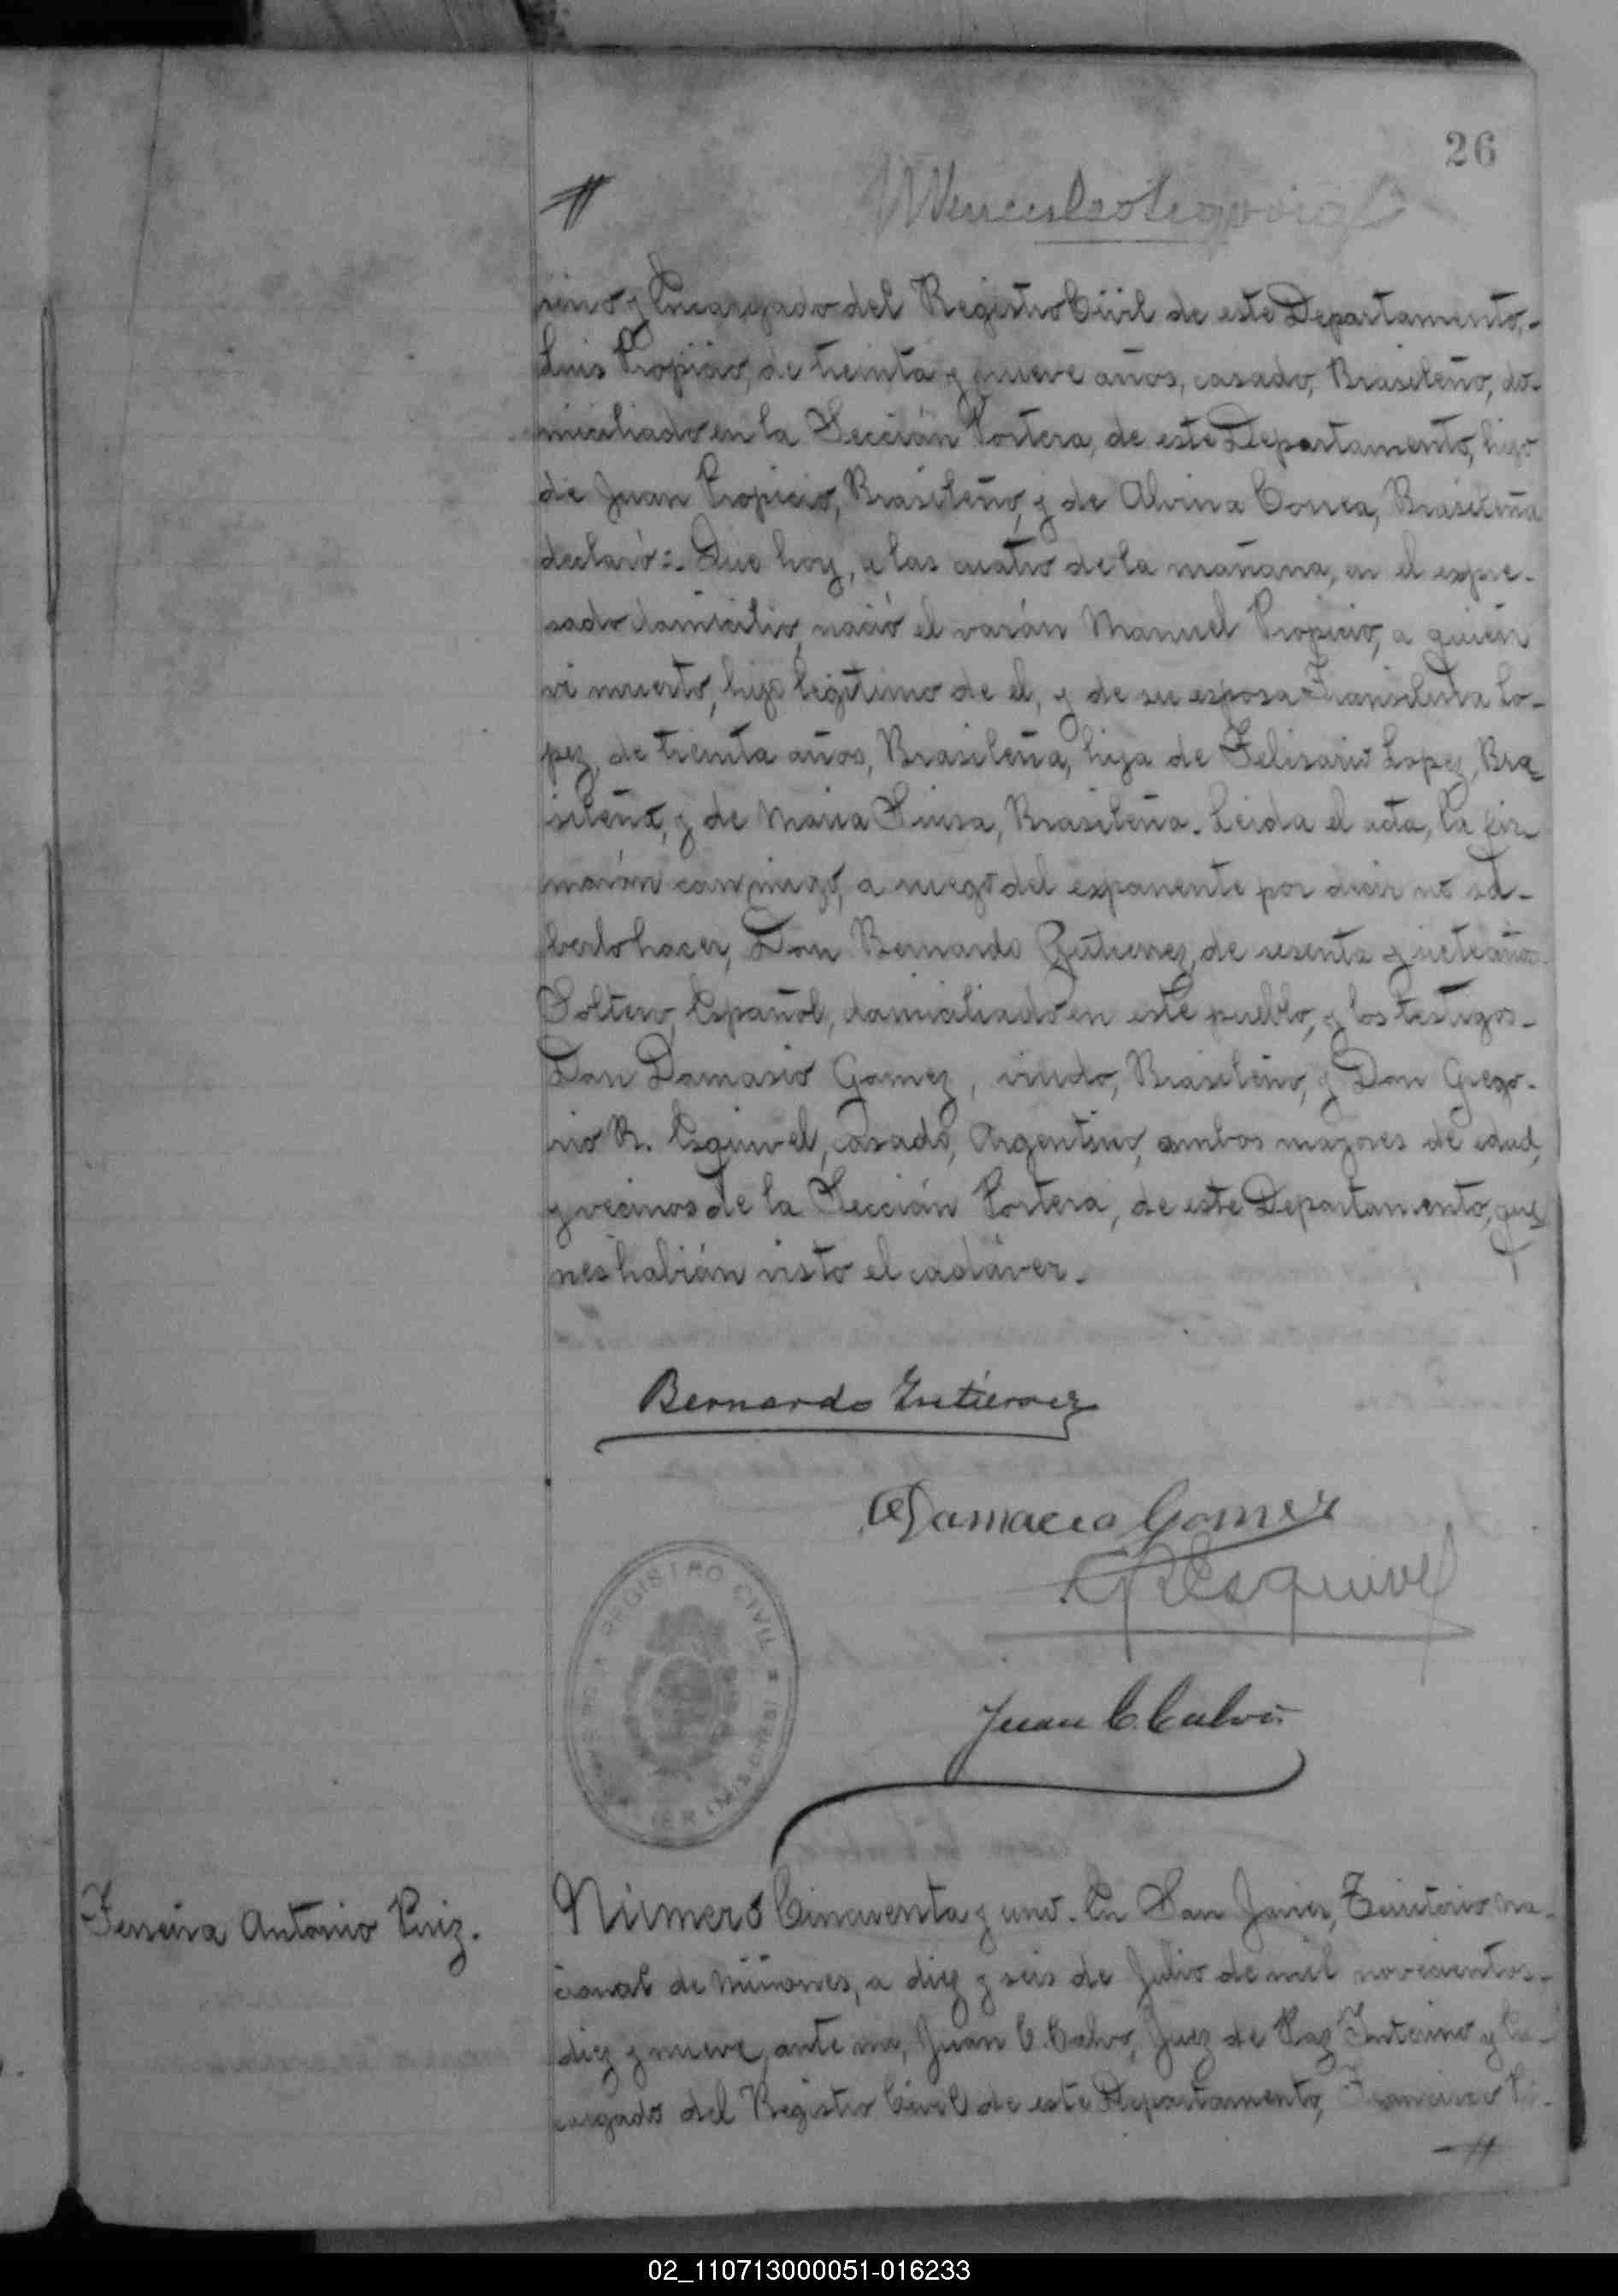 26
rino y Encargado del Registro Civil de este Departamento,-
Luis Propicio, de treinta y nueve años, casado, Brasileño, do-
miciliado en la Sección Portera, de este Departamento, hijo
de Juan Propicio, Brasileño, y de Alvina Correa, Brasileña
declaró:- Que hoy, a las cuatro de la mañana, en el expre-
sado domicilio, nació el varón Manuel Propicio, a quién
ví muerto, hijo legítimo de el, y de su esposa Lo-
pez, de treinta años, Brasileña, hija de Felisario Lopez, Bra-
sileño, y de Maria Brasileña. Leida el acta, la fir-
marón conmigo, a ruego del exponente por decir no sa-
berlo hacer, Don Bernardo Gutierrez, de sesenta y siete años
Soltero, Español, domiciliado en este pueblo, y los testigos-
Don Damasio Gomez, viudo, Brasileño, y Don Grego-
rio R. Esquivel, casado, Argentino, ambos mayores de edad,
y vecinos de la Sección Portera, de este Departamento, quie-
nes habián visto el cadáver.-
Bernardo Gutierrez
Damacio Gomez
GREsquivel
REGISTRO CIVIL
Juan C. Calvo
Ferreira Antonio Ruiz.
Número Cincuenta y uno. En San Javier, Territorio na-
cional de Misiones, a diez y seis de Julio de mil novecientos-
diez y nueve, ante mi, Juan C. Calvo, Juez de Paz Interino y En-
cargado del Registro Civil de este Departamento, Francisco
02_110713000051-016233